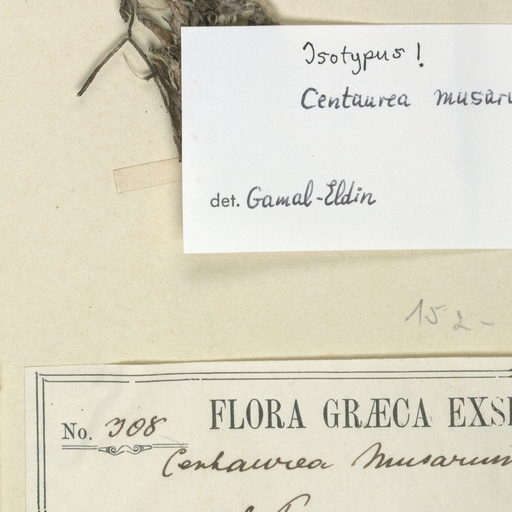 Isotypus!
Centaurea musaru
det. Gamal-Eldin
152-
FLORA GRÆCA EXSI
No. 308
Centaurea Musarum